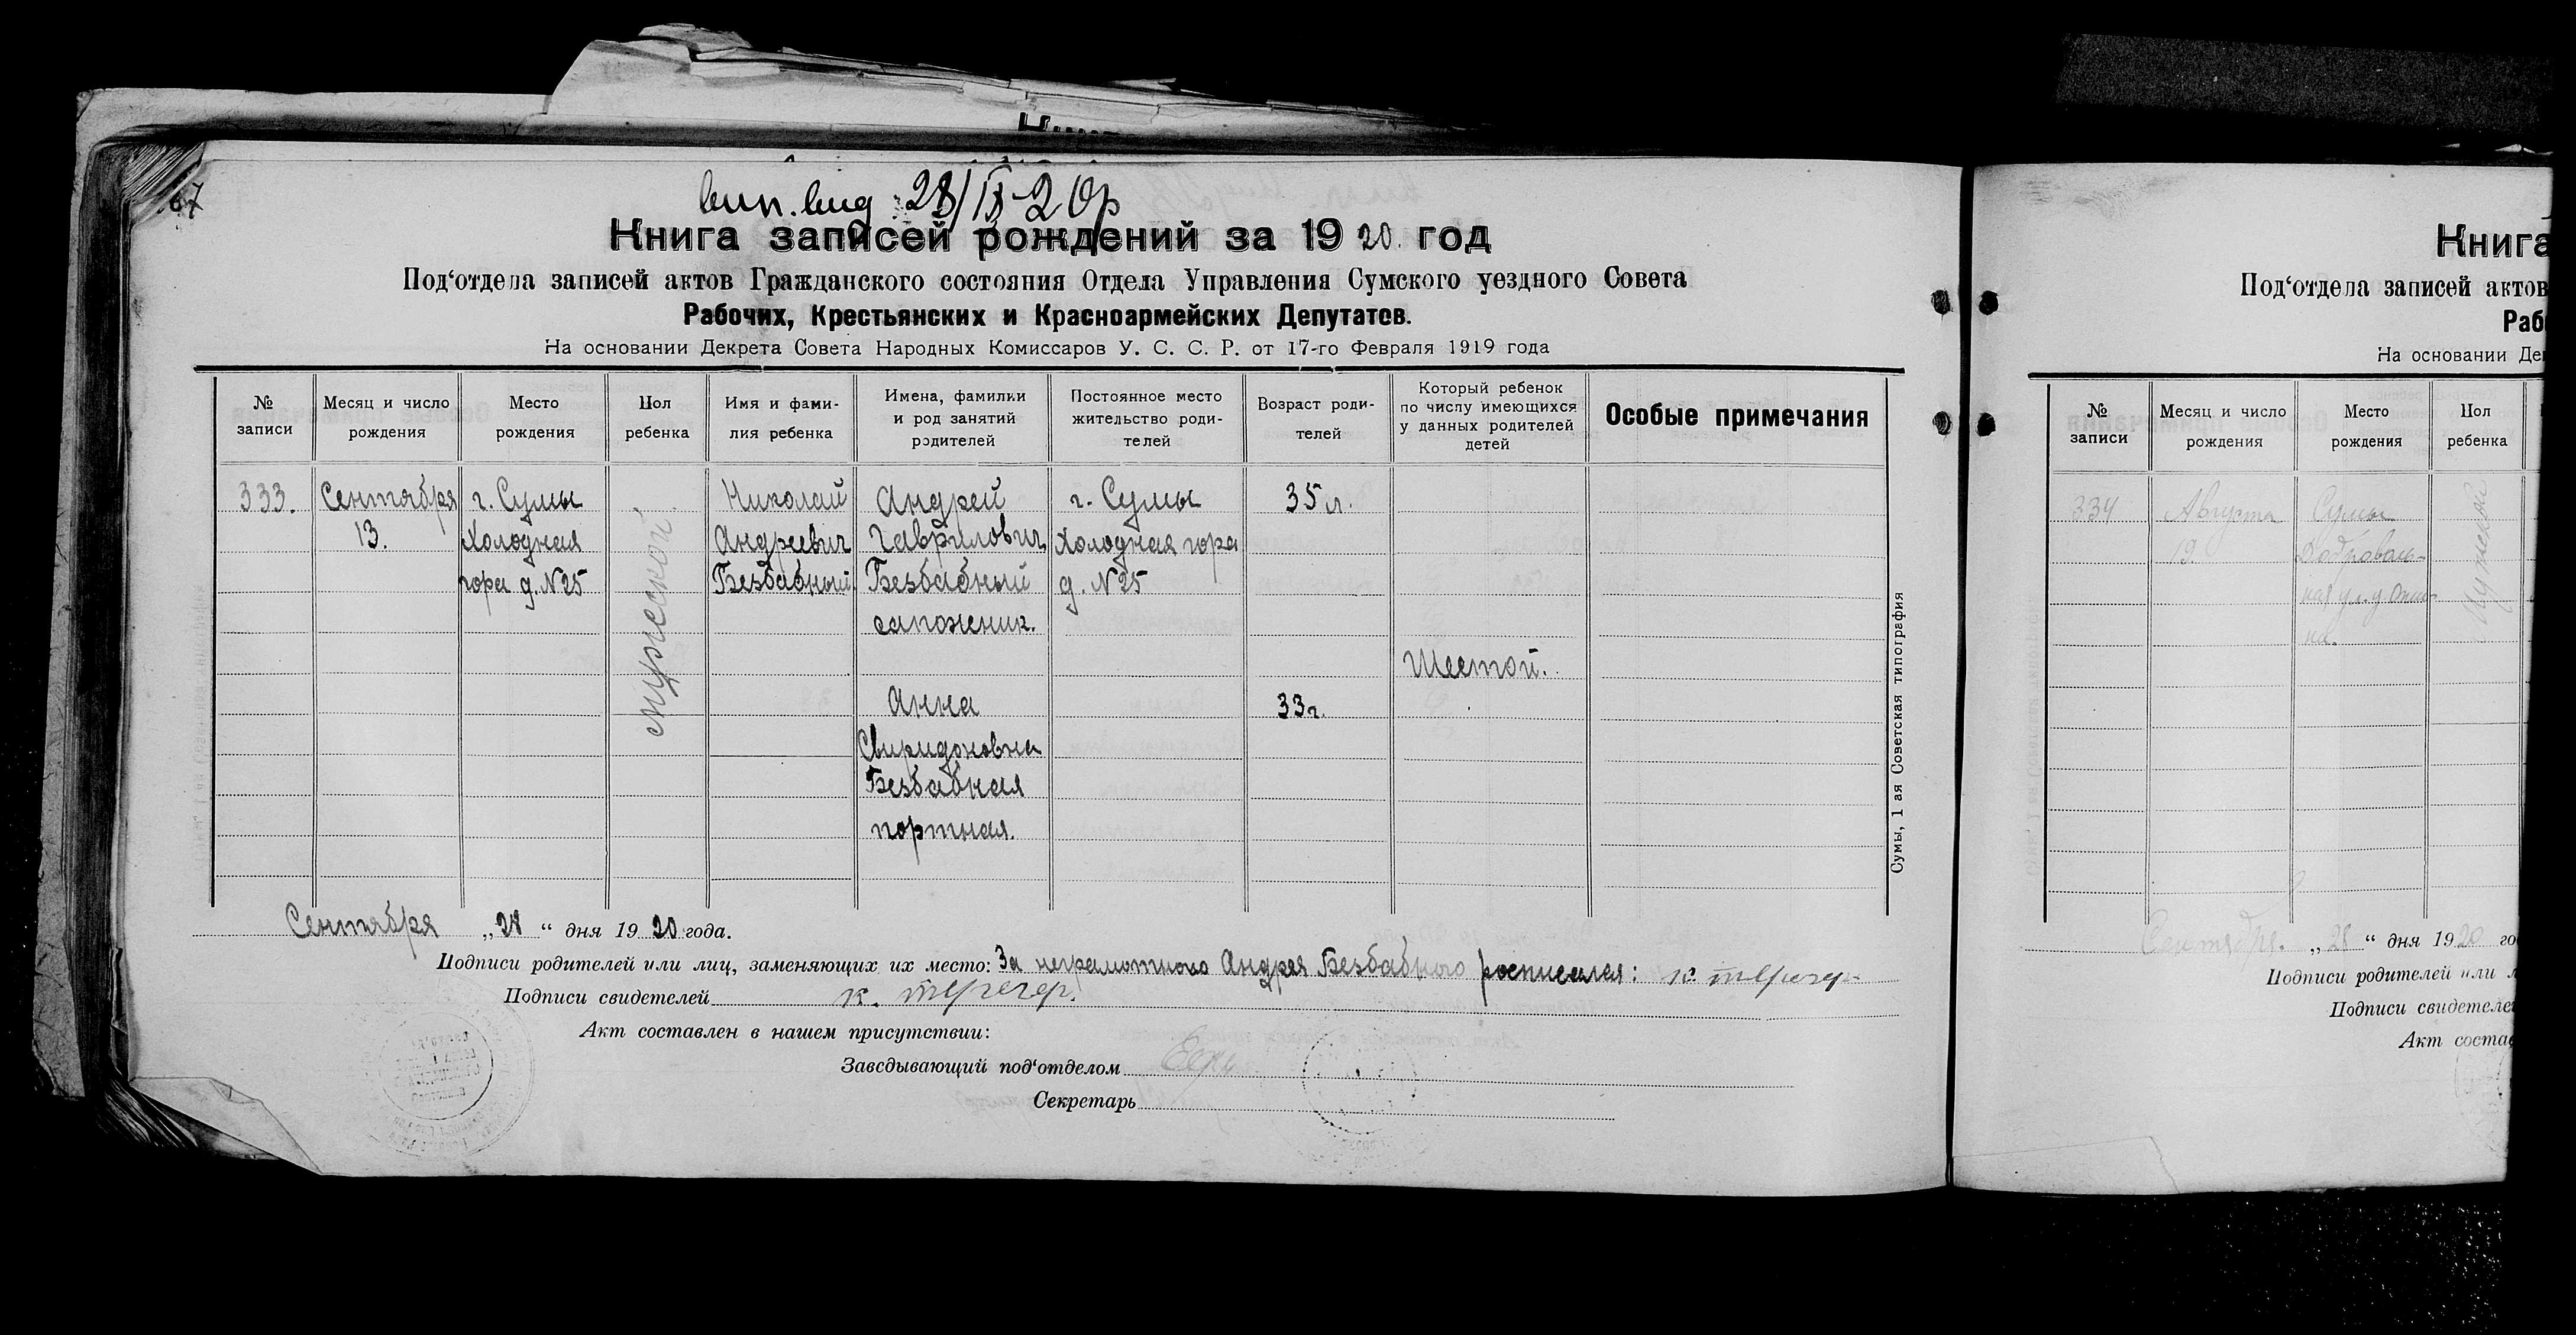 67
вып. вид 28/IX-20р
Книга записей рождений за 1920 год
Под‘отдела записей актов Гражданского состояния Отдела Управления Сумского уездного Совета
Рабочих, Крестьянских и Красноармейских Депутатов.
На основании Декрета Совета Народных Комиссаров У. С. С. Р. от 17-го Февраля 1919 года
№ записи
Месяц и число рождения
Место рождения
Пол ребенка
Имя и фами-
лия ребенка
Имена, фамилии
и род занятий
родителей
Постоянное место
жительство роди-
телей
Возраст роди-
телей
Который ребенок
по числу имеющихся
у данных родителей
детей
Особые примечания
333.
Сентября
13.
г. Сумы
Холодная
гора д. №25
мужеской
Николай
Андреевич
Безбабный.
Андрей
Гаврилович
Безбабный
сапожник.
Анна
Свиридоновна
Безбабная
портная.
г. Сумы
Холодная гора
д. №25
35 л.
33 г.
Шестой.
Сумы, 1 ая Советская типография
Сентября „28“ дня 1920 года.
Подписи родителей или лиц, заменяющих их место: За неграмотного Андрея Безбабного росписался: К.
Подписи свидетелей К.
Акт составлен в нашем присутствии:
Заведывающий под‘отделом
Секретарь
Книга
Под‘отдела записей актов
Раб
На основании Де
№ записи
Месяц и число рождения
Место рождения
Пол ребенка
334
Августа
19.
Сумы
Мужской
Сентября. „28“ дня 1920 го
Подписи родителей или л
Подписи свидетеле
Акт состав